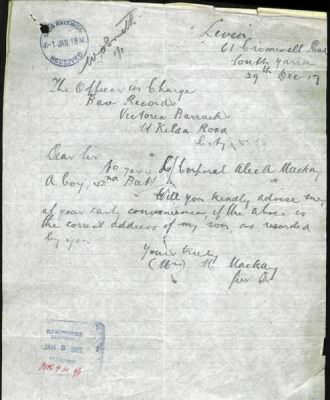 RECORDS
1 JAN 18
RECEIVED
61 Cromwell Road
South Yarra
29th Dec 17
The Officer in Charge
Base Records
Victoria Barracks
St Kilda Road
City
Dear Sir
L/Corporal Alec A Mackay
A Coy, 2nd Batt
Will you kindly advise me,
at your early convenience, if the above is
the correct address of my son, as recorded
by you.
Yours truly
(Mrs) H Mackay
JAN